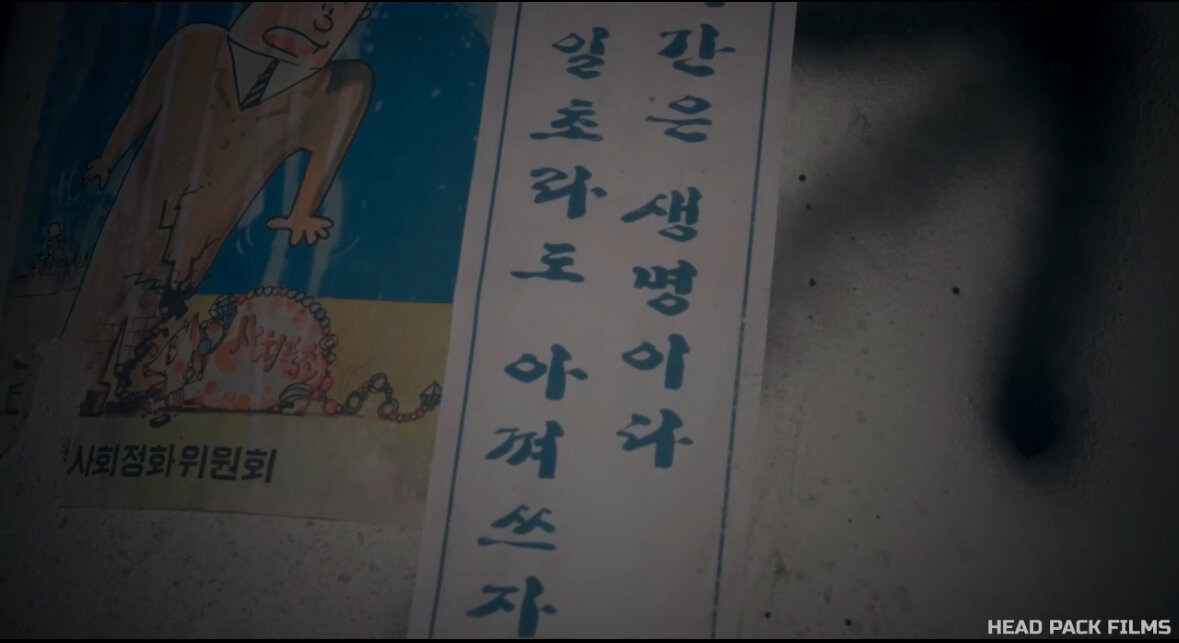 간은 생명이다
일초라도 아껴 쓰자
사회정화위원회
HEAD PACK FILMS